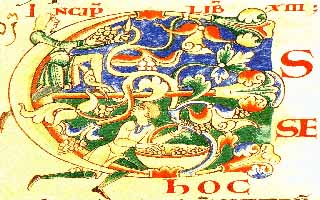 INCIP̄ LIB̄ XIII;
ES
SE
hOC